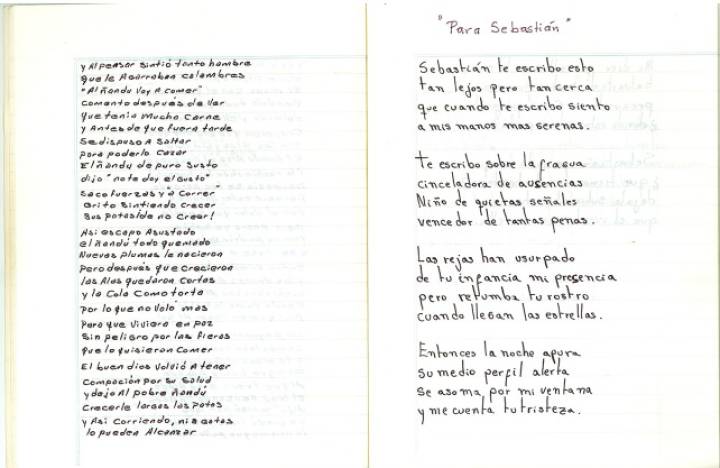 y Al Pensar Sintió tanto hambre
que le Agarraban calambres
"Al ñandu Voy A comer"
Comento después de Ver
que tenia Mucha Carne
y Antes de que fuera tarde
Se dispuso A Saltar
para poderlo Cazar
El ñandy de puro Susto
dijo "no te doy el Gusto"
Saco Fuerzas y a Correr"
Grito Sintiendo Crecer
Sus patas ¡de no Creer!
Asi escapo Asustado
el ñandú todo quemado
Nuevas plumas le nacieron
Pero después que Crecieron
las Alas quedaron Cortas
y la Cola Como torta
por lo que no Voló mas
Para que Viviera en paz
Sin peligro por las fieras
que lo quisieron Comer
El buen dios Volvió A tener
Compación por su Salud
y dejo Al pobre ñandú
Crecerle largas las patas
y Asi Corriendo, ni a gatas
lo pueden Alcanzar
"Para Sebastián"
Sebastián te escribo esto
tan lejos pero tan cerca
que cuando te escribo siento
a mis manos mas serenas.
Te escribo sobre la fragua
cinceladora de ausencias
Niño de quietas señales
vencedor de tantas penas.
Las rejas han usurpado
de tu infancia mi presencia
pero retumba tu rostro
cuando llegan las estrellas.
Entonces la noche apura
su medio perfil alerta
se asoma por mi ventana
y me cuenta tu tristeza.